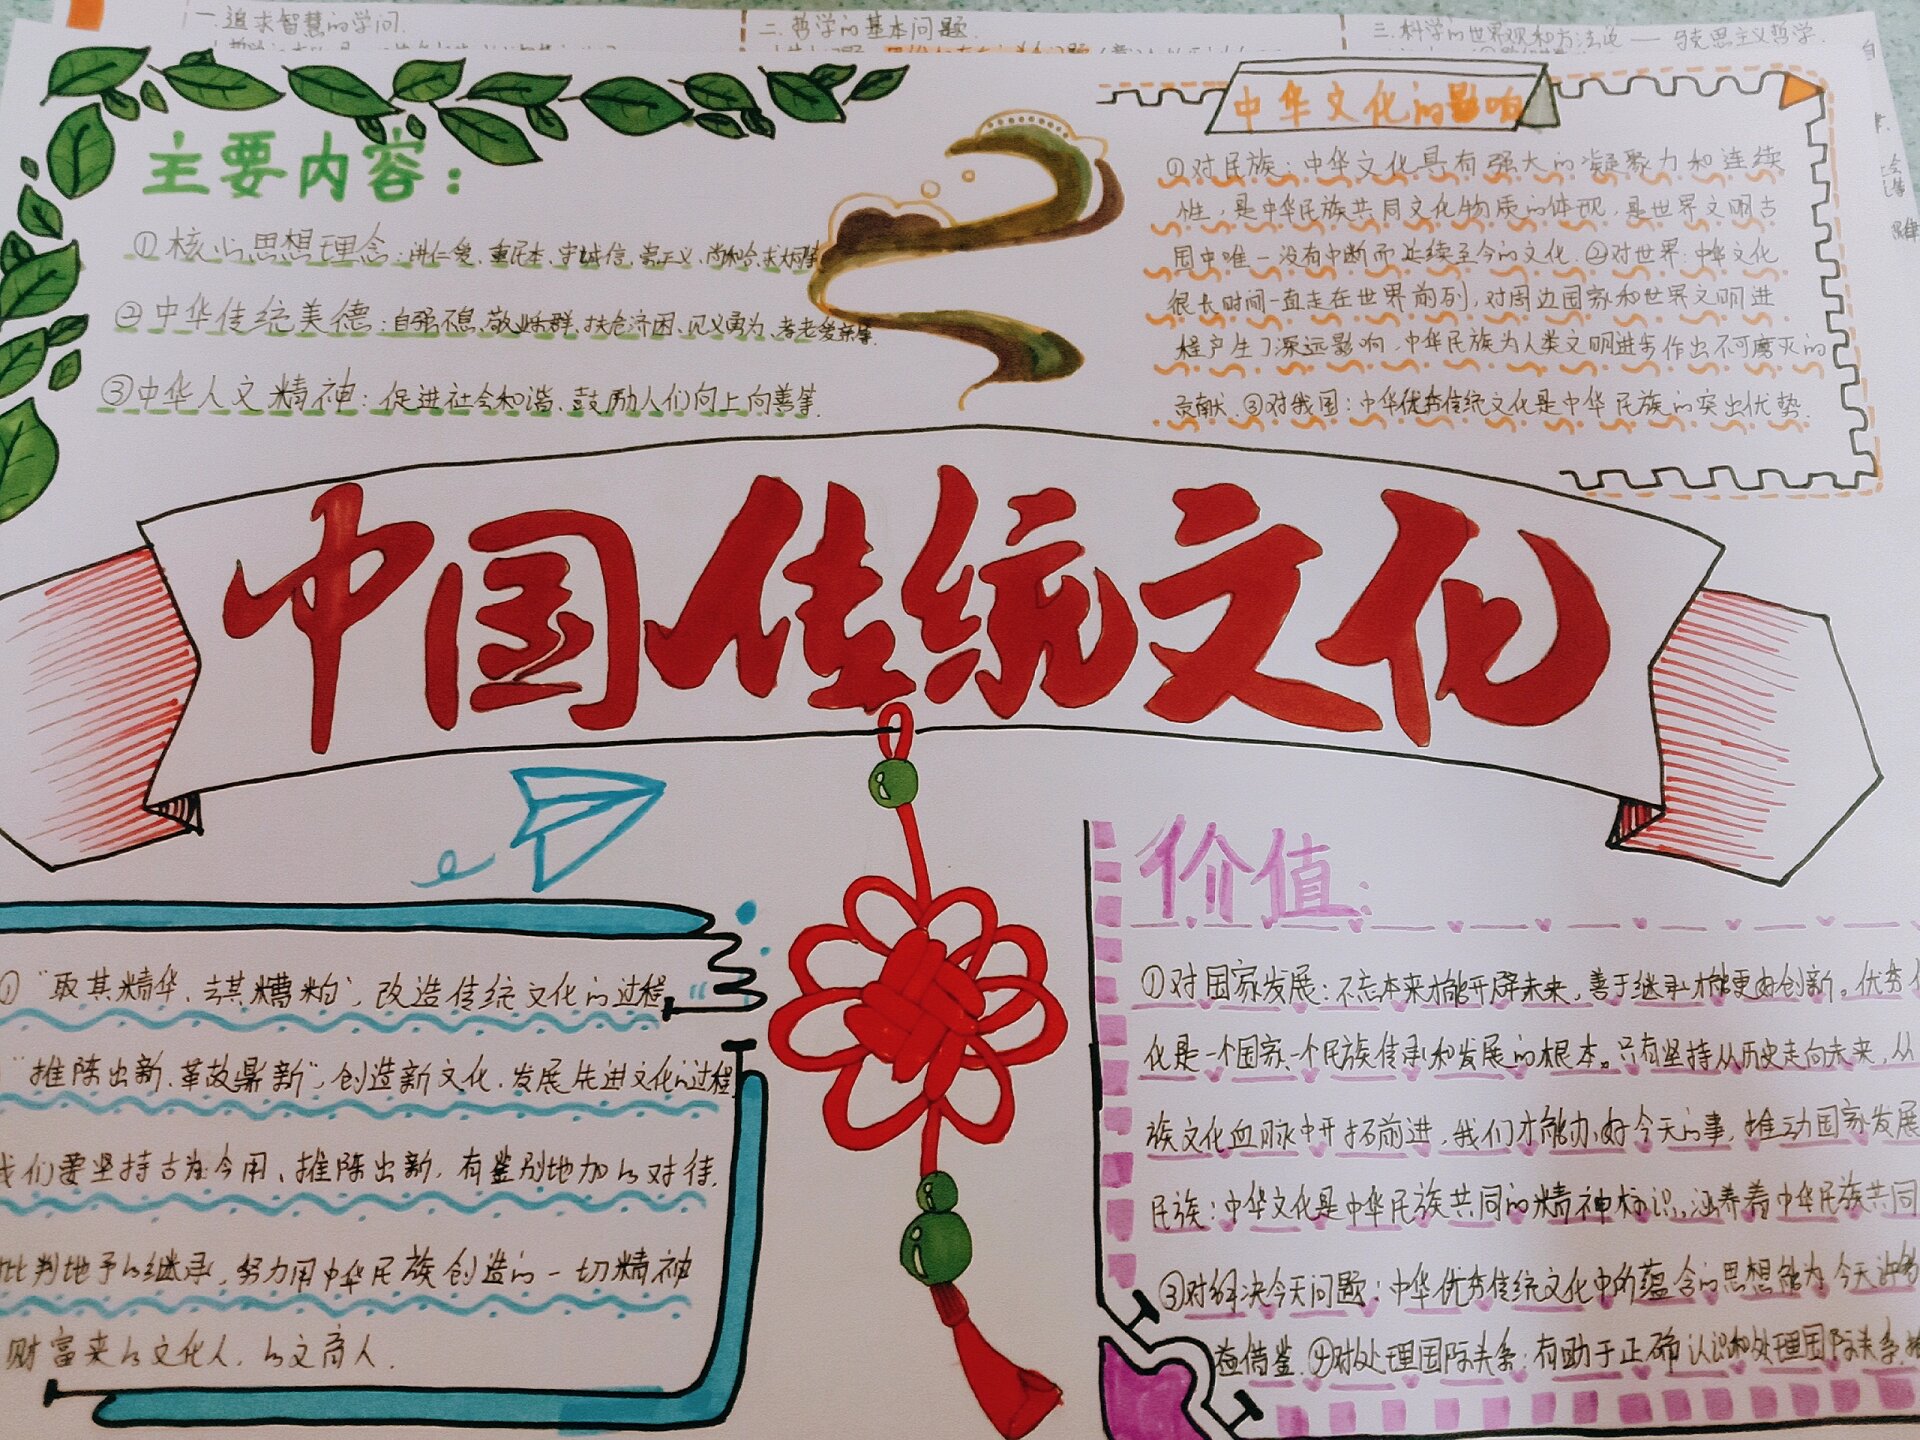 一.追求智慧的学问.
二.哲学的基本问题.
三.科学的世界观和方法论——马克思主义哲学.
主要内容:
①核心思想理念:讲仁爱、重民本、守诚信、崇正义、尚和合、求大同等
②中华传统美德:自强不息、敬业乐群、扶危济困、见义勇为、孝老爱亲等.
③中华人文精神:促进社会和谐、鼓励人们向上向善等.
中华文化的影响
①对民族:中华文化具有强大的凝聚力和连续
性,是中华民族共同文化物质的体现,是世界文明古
国中唯一没有中断而延续至今的文化.②对世界:中华文化
很长时间一直走在世界前列,对周边国家和世界文明进
程产生了深远影响,中华民族为人类文明进步作出不可磨灭的
贡献.③对我国:中华优秀传统文化是中华民族的突出优势.
中国传统文化
①"取其精华、去其糟粕",改造传统文化的过程
"推陈出新、革故鼎新",创造新文化.发展先进文化的过程
我们要坚持古为今用、推陈出新,有鉴别地加以对待.
批判地予以继承,努力用中华民族创造的一切精神
财富来以文化人.以文育人.
价值:
①对国家发展:不忘本来才能开辟未来,善于继承才能更好创新。优秀
化是一个国家、一个民族传承和发展的根本。只有坚持从历史走向未来,从
族文化血脉中开拓前进,我们才能办好今天的事,推动国家发展
民族:中华文化是中华民族共同的精神标识,涵养着中华民族共同
③对解决今天问题:中华优秀传统文化中的蕴含的思想能为今天
借鉴.④对处理国际关系:有助于正确认识和处理国际关系.